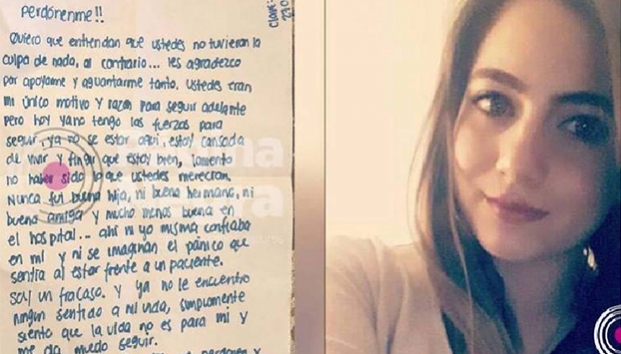 Perdónenme!!
Quiero que entiendan que ustedes no tuvieron la
culpa de nada, al contrario... les agradezco
por apoyarme y aguantarme tanto. Ustedes eran
mi único motivo y razón para seguir adelante
pero hoy ya no tengo las fuerzas para
seguir, ya no se estar aquí, estoy cansada
de vivir y fingir que estoy bien, lamento
no haber sido lo que ustedes merecían.
Nunca fui buena hija, ni buena hermana, ni
buena amiga y mucho menos buena en
el hospital... ahí ni yo misma confiaba
en mí y ni se imaginan el pánico que
sentía al estar frente a un paciente.
Soy un fracaso. Y ya no le encuentro
ningún sentido a mi vida, simplemente
siento que la vida no es para mí y
me da miedo seguir.